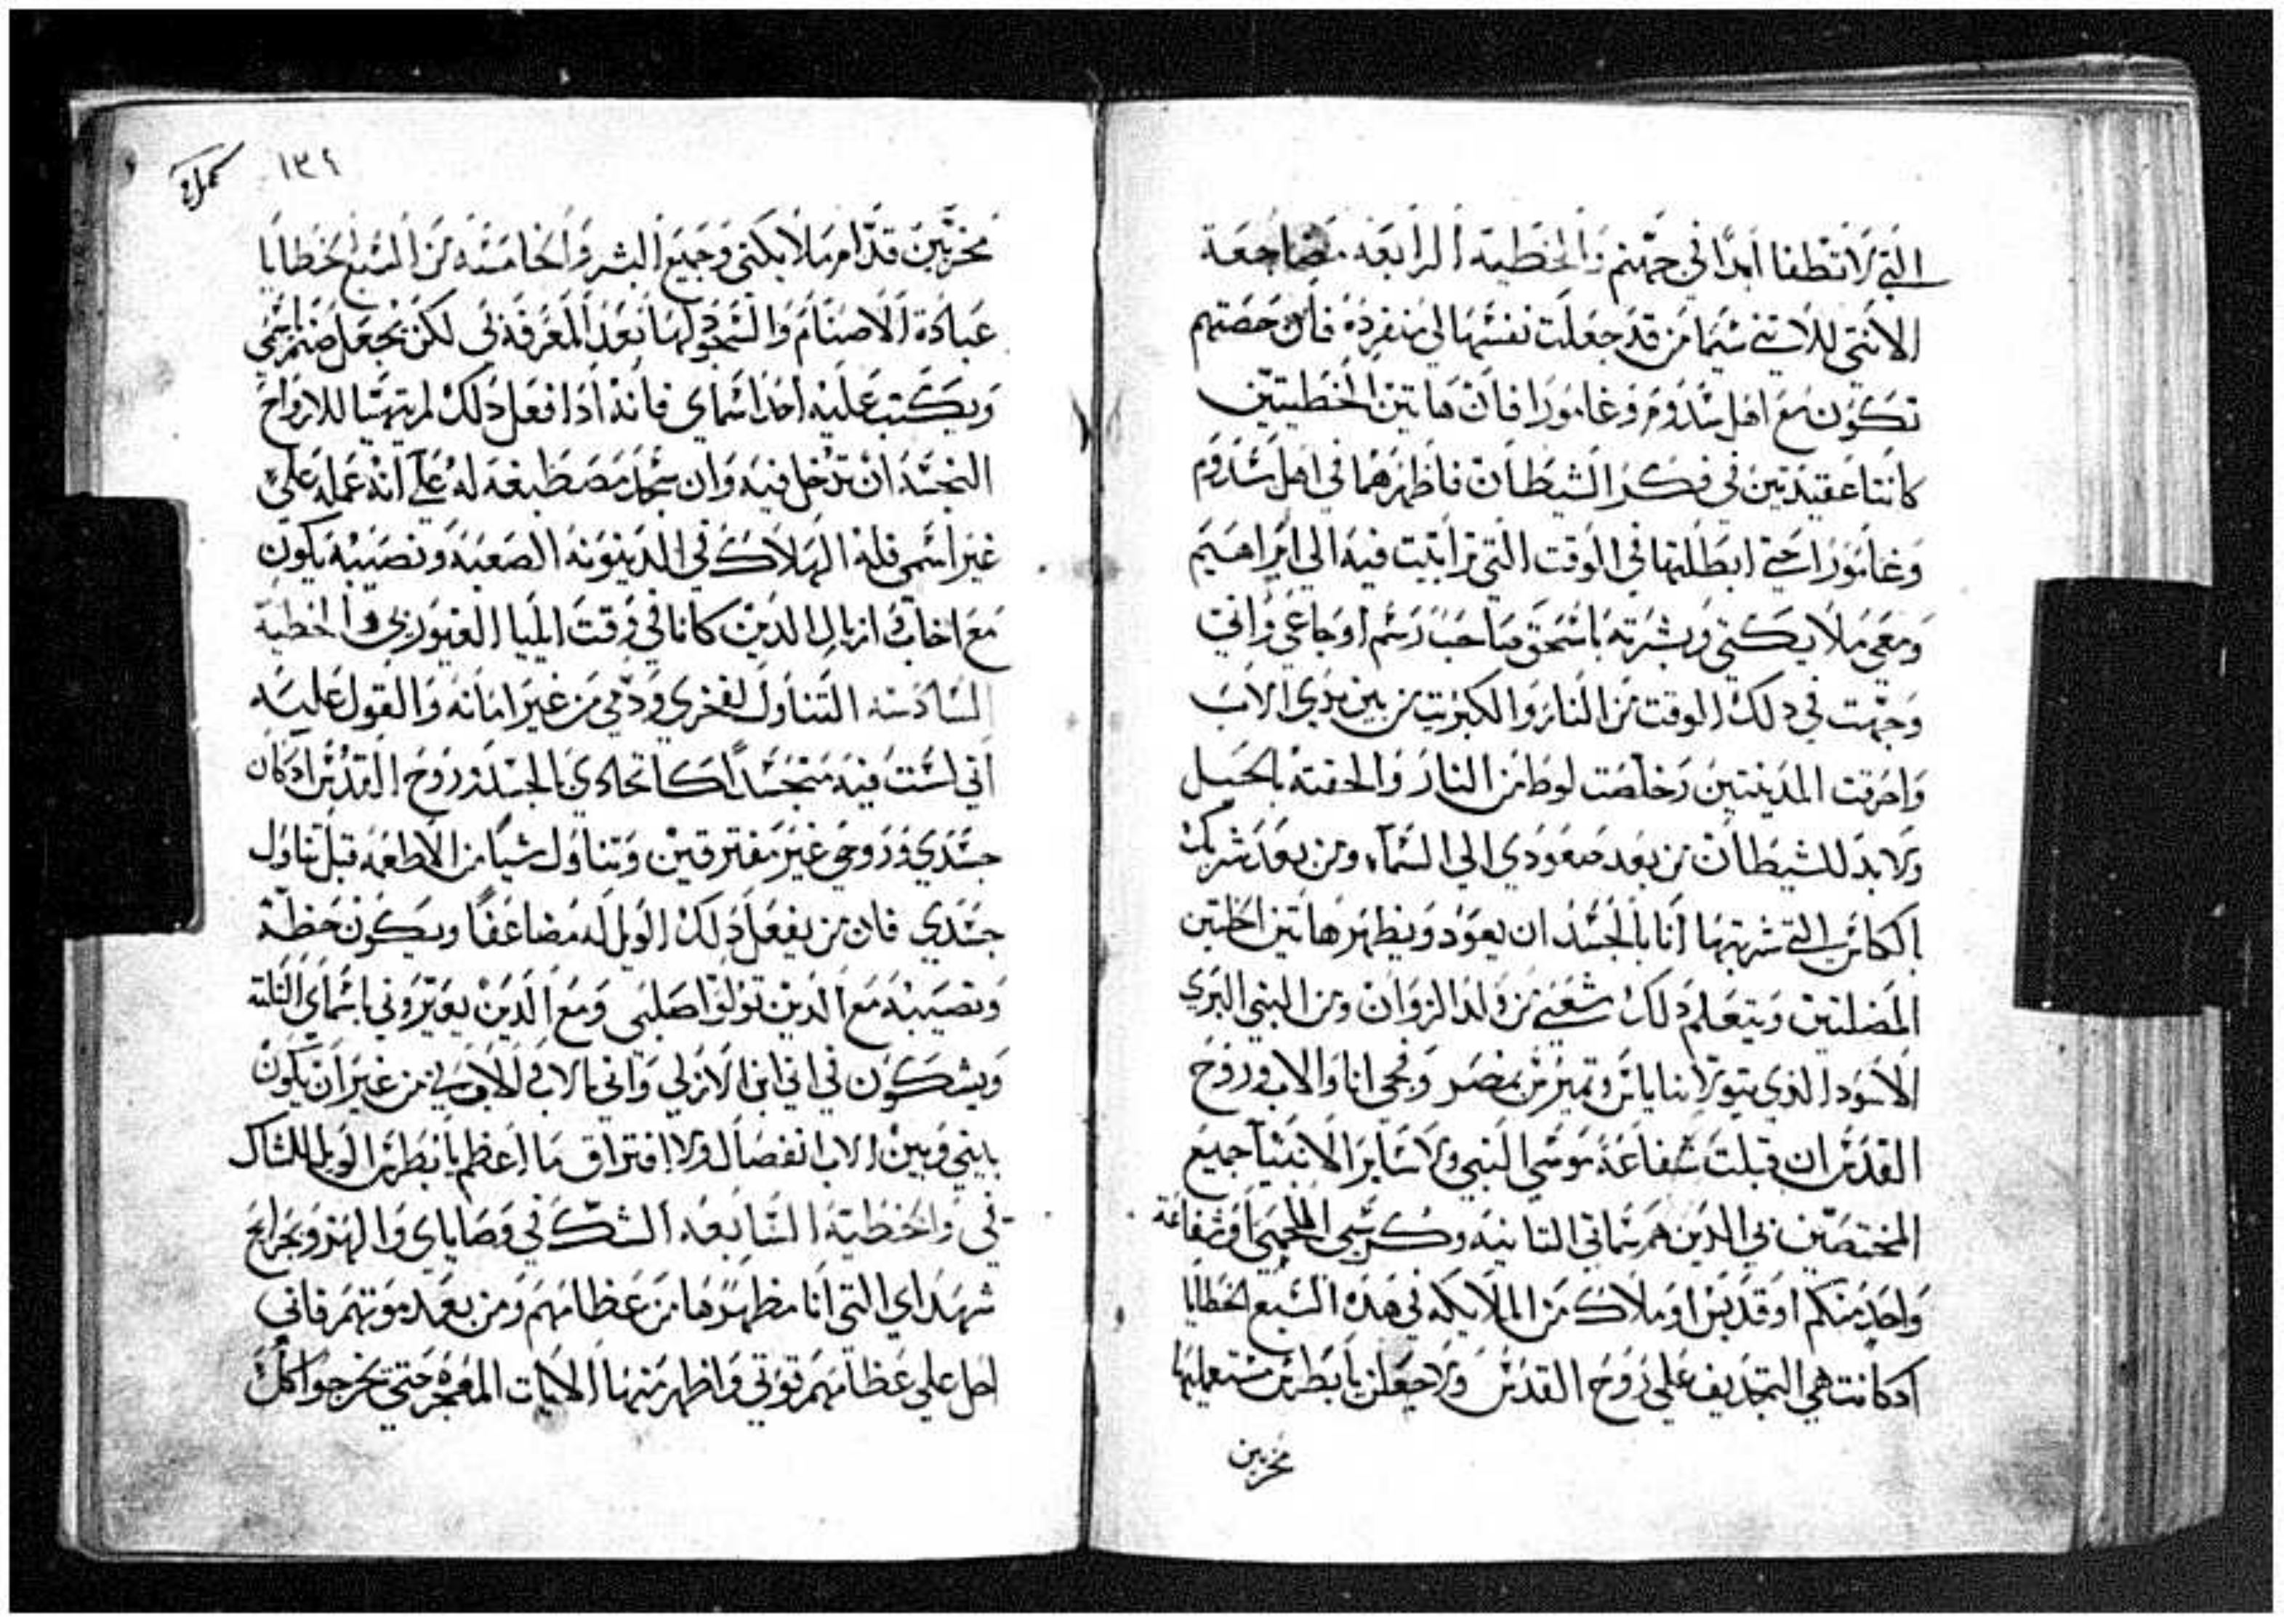 التي لا تطفا ابدا في جهنم والخطية الرابعة مضاجعة
الانثي للانثي سيما من قد جعلت نفسها لي منفردة فان حصتهم
تكون مع اهل سدوم وغامورا فان هاتين الخطيتين
كانتا عقيدتين في فكر الشيطان فاظهرهما في اهل سدوم
وغامورا حتي ابطلتها في الوقت التي ترايت فيه الي ابراهيم
ومعي ملايكتي وبشرته باسحق صاحب رسم اوجاعي واني
وجهت في دلك الوقت من النار والكبريت من بين يدي الاب
واحرقت المدينتين وخلصت لوط من النار والحقته بالجبل
ولا بد للشيطان من بعد صعودي الي السماء ومن بعد شربك
الكاس التي شربتها انا بالجسد ان يعود ويظهر هاتين الخلتين
المضلتين ويتعلم دلك شعبي من ولد الزوان ومن البني البري
الاسود الذي يتولا بنا يا بن وتميز من بمصر وفحي انا والاب وروح
القدس ان قبلت شفاعة موسي النبي ولا ساير الانبيا جميع
المختصين بي الدين هم سماتي التانية وكرسي اللحمي او شفاعة
واحد منكم او قديس او ملاك من الملايكة في هذه السبع الخطايا
ادكانت هي التجديف علي روح القدس ولاجعلن يا بطرس مستعمليها
مخزيين
١٣٤
مخزيين قدام ملايكتي وجميع البشر والخامسة من السبع الخطايا
عبادة الاصنام والسجود لها بعد المعرفة بي لكن يجعل صنم باسمي
ويكتب عليه احد اسماي فانه ادا فعل دلك لم يتهيا للارواح
النجسة ان تدخل فيه وان سجد مصطبغه له علي انه عمله علي
غير اسمي فله الهلاك في الدينونة الصعبة ونصيبه يكون
مع اخاب وازبال الدين كانا في وقت ايليا الغيور بي والخطية
السادسة التناول لفخري ودمي من غير امانة والقول عليه
اني لست فيه متجسدا كاتحادي بالجسد وروح القدس ادكان
جسدي وروحي غير مفترقين وتناول شيا من الاطعمة قبل تناول
جسدي فان من يفعل دلك الويل له مضاعفا ويكون حظه
ونصيبه مع الدين تولوا صلبي ومع الدين يعيروني باسماي التلتة
ويشكون في اني ابن الازلي واني بالاب والاب بي من غير ان يكون
بيني وبين الاب انفصال ولا افتراق ما اعظم يا بطرس الويل للشاك
في والخطية السابعة الشك في وصاياي والهزو بجرايح
شهداي التي انا مظهرها من عظامهم ومن بعد موتهم فاني
احل علي عظامهم قوتي واظهر منها الايات المعجزة حتي يخرجوا كل